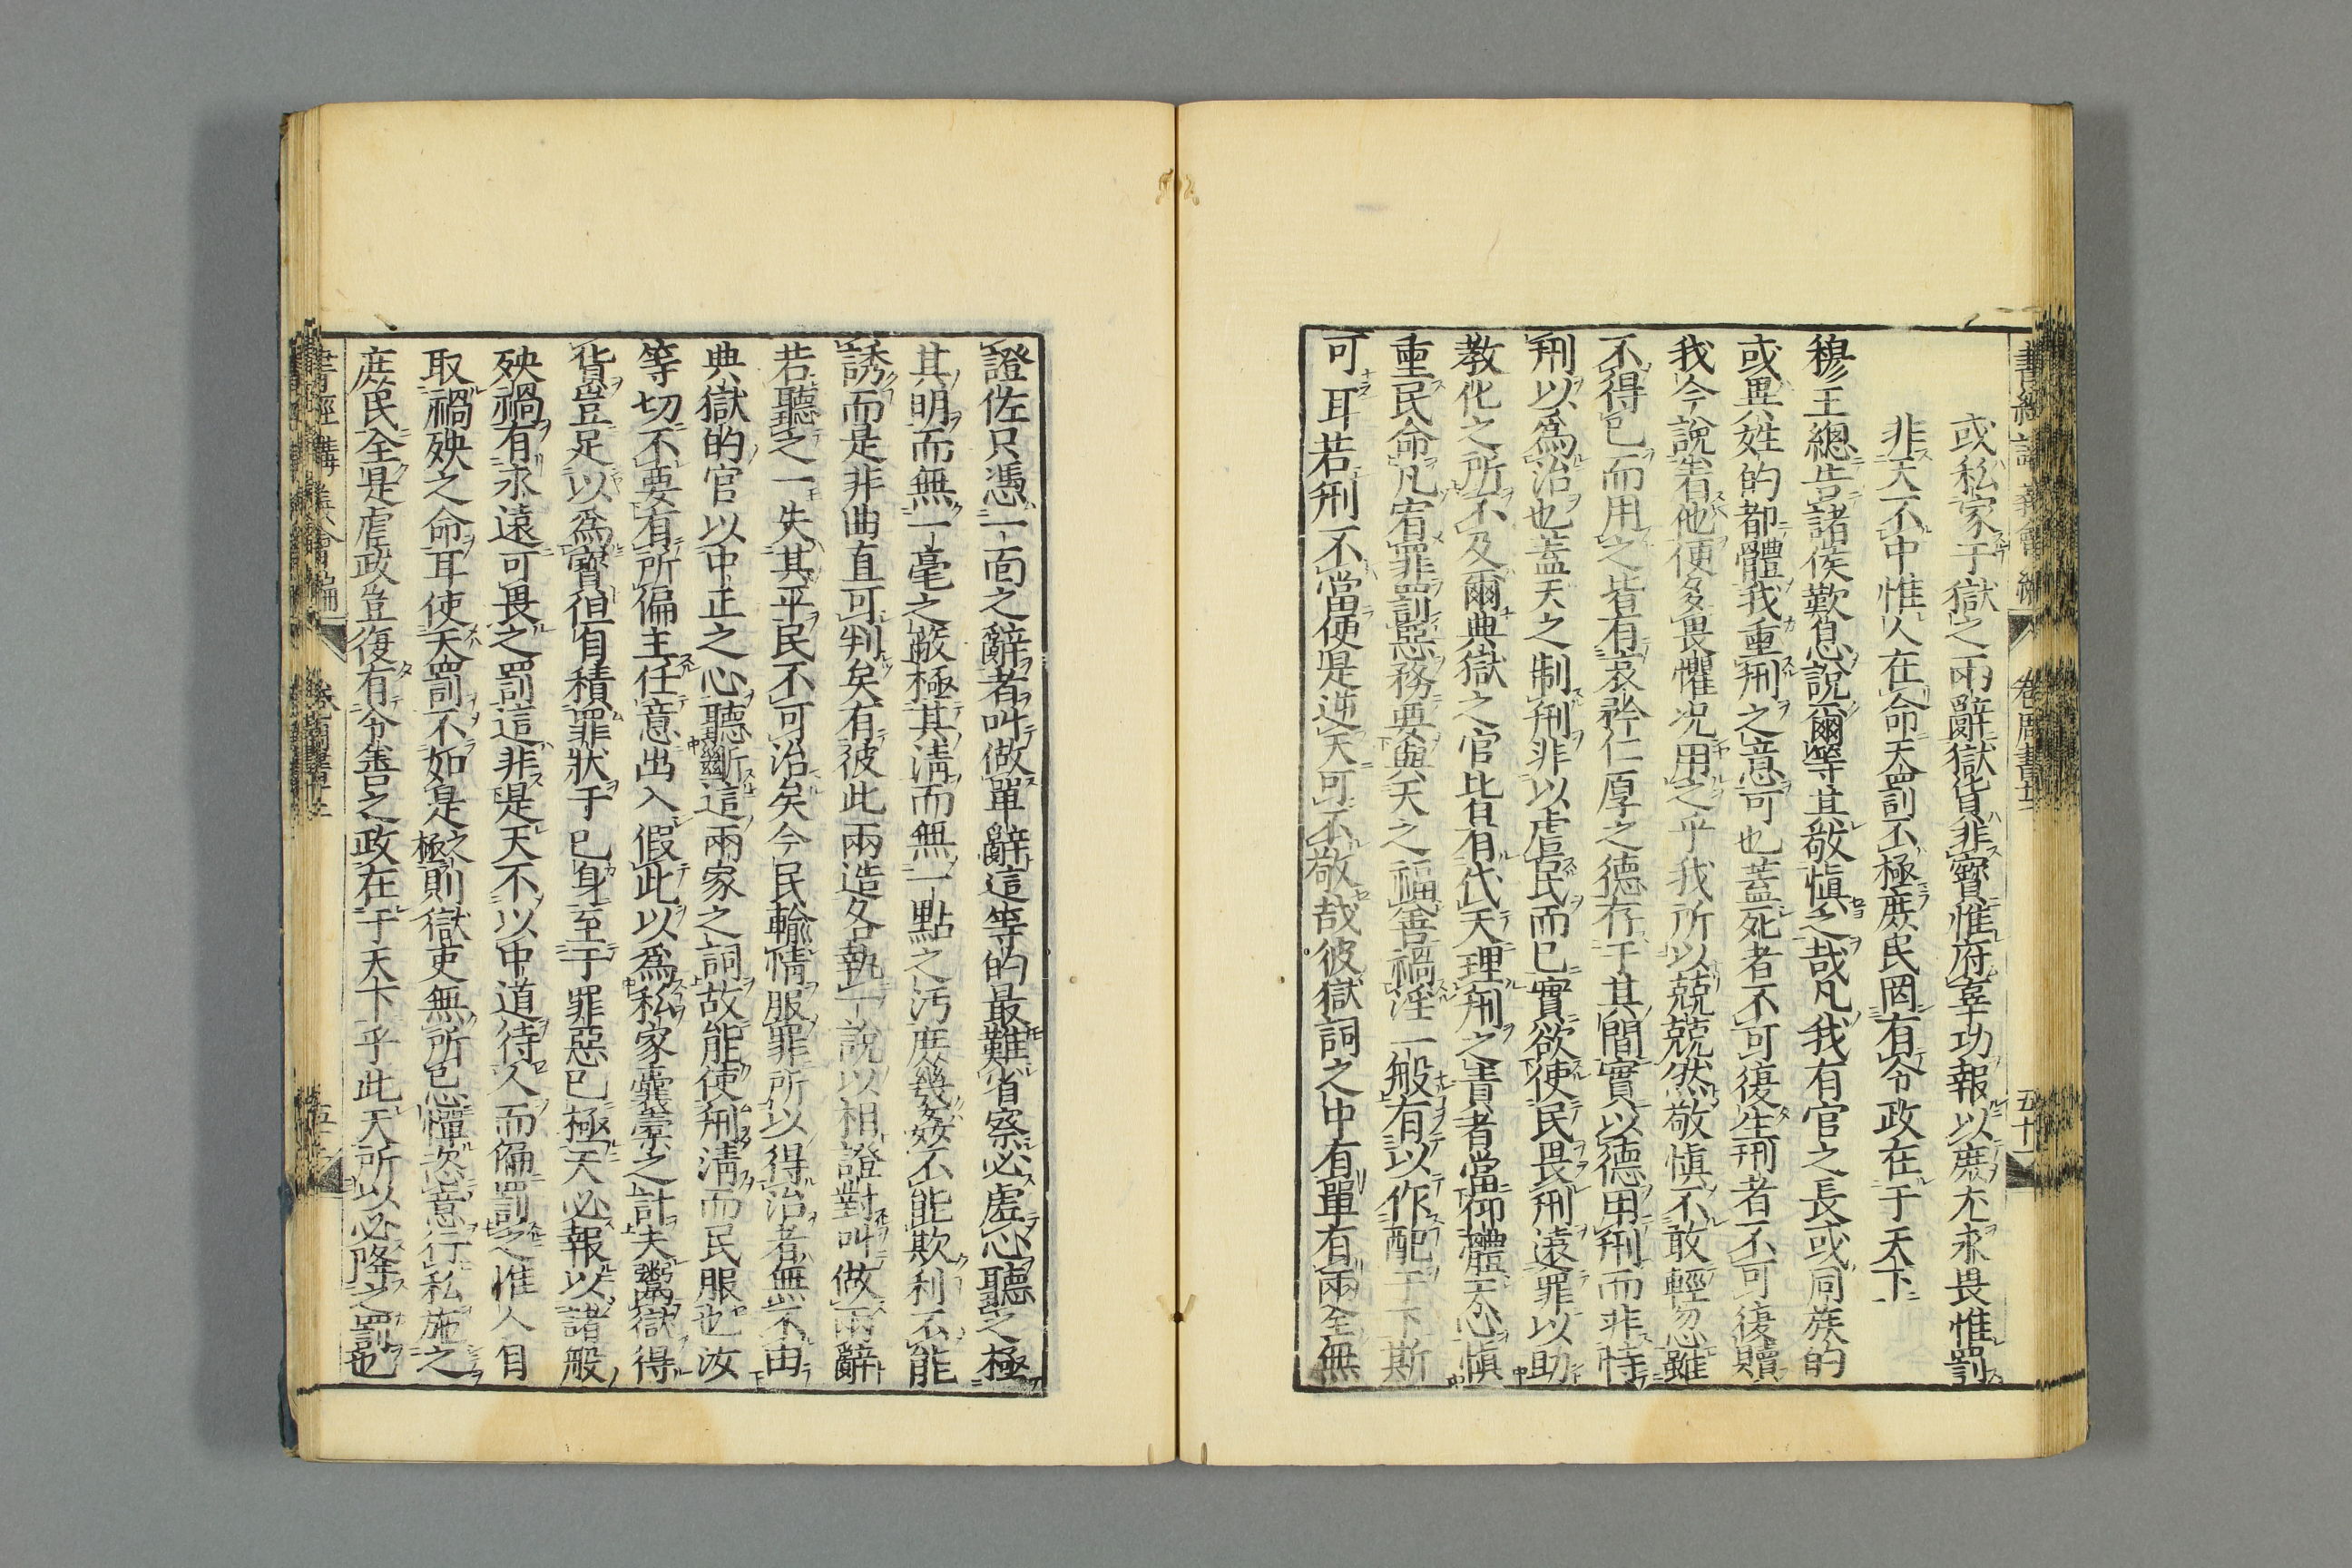 或私家于獄之兩辭獄貨非寶惟府辜功報以庶尤永畏惟罰
非天不中惟人在命天罰不極庶民罔有令政在于天下
穆王總告諸侯歎息說爾等其敬愼之哉凡我有官之長或同族的
或異姓的都體我重刑之意可也蓋死者不可復生刑者不可復贖
我今說着他便多畏懼况用之乎我所以兢兢然敬愼不敢輕忽雖
不得已而用之皆有哀矜仁厚之德存于其間實以德用刑而非恃
刑以爲治也蓋天之制刑非以虐民而已實欲使民畏刑遠罪以助
教化之所不及爾典獄之官皆有代天理刑之責者當仰體天心愼
重民命凡宥罪罰惡務要與天之福善禍淫一般有以作配于下斯
可耳若刑不當便是逆天可不敬哉彼獄詞之中有單有兩全無
證佐只憑一面之辭者叫做單辭這等的最難省察必虚心聽之極
其明而無一毫之蔽極其淸而無一點之汚庶幾姦不能欺利不能
誘而是非曲直可判矣有彼此兩造各執一說以相證對叫做兩辭
若聽之一失其平民不可治矣今民輸情服罪所以得治者無不由
典獄的官以中正之心聽斷這兩家之詞故能使刑淸而民服也汝
等切不要有所偏主任意出入假此以爲私家囊橐之計夫鬻獄得
貨豈足以爲寶但自積罪狀于己身至于罪惡已極天必報以諸般
殃禍有永遠可畏之罰這非是天不以中道待人而偏罰之惟人自
取禍殃之命耳使天罰不如是之極則獄吏無所忌憚恣意行私施之
庶民全是虐政豈復有令善之政在于天下乎此天所以必降之罰也
書經講義會編